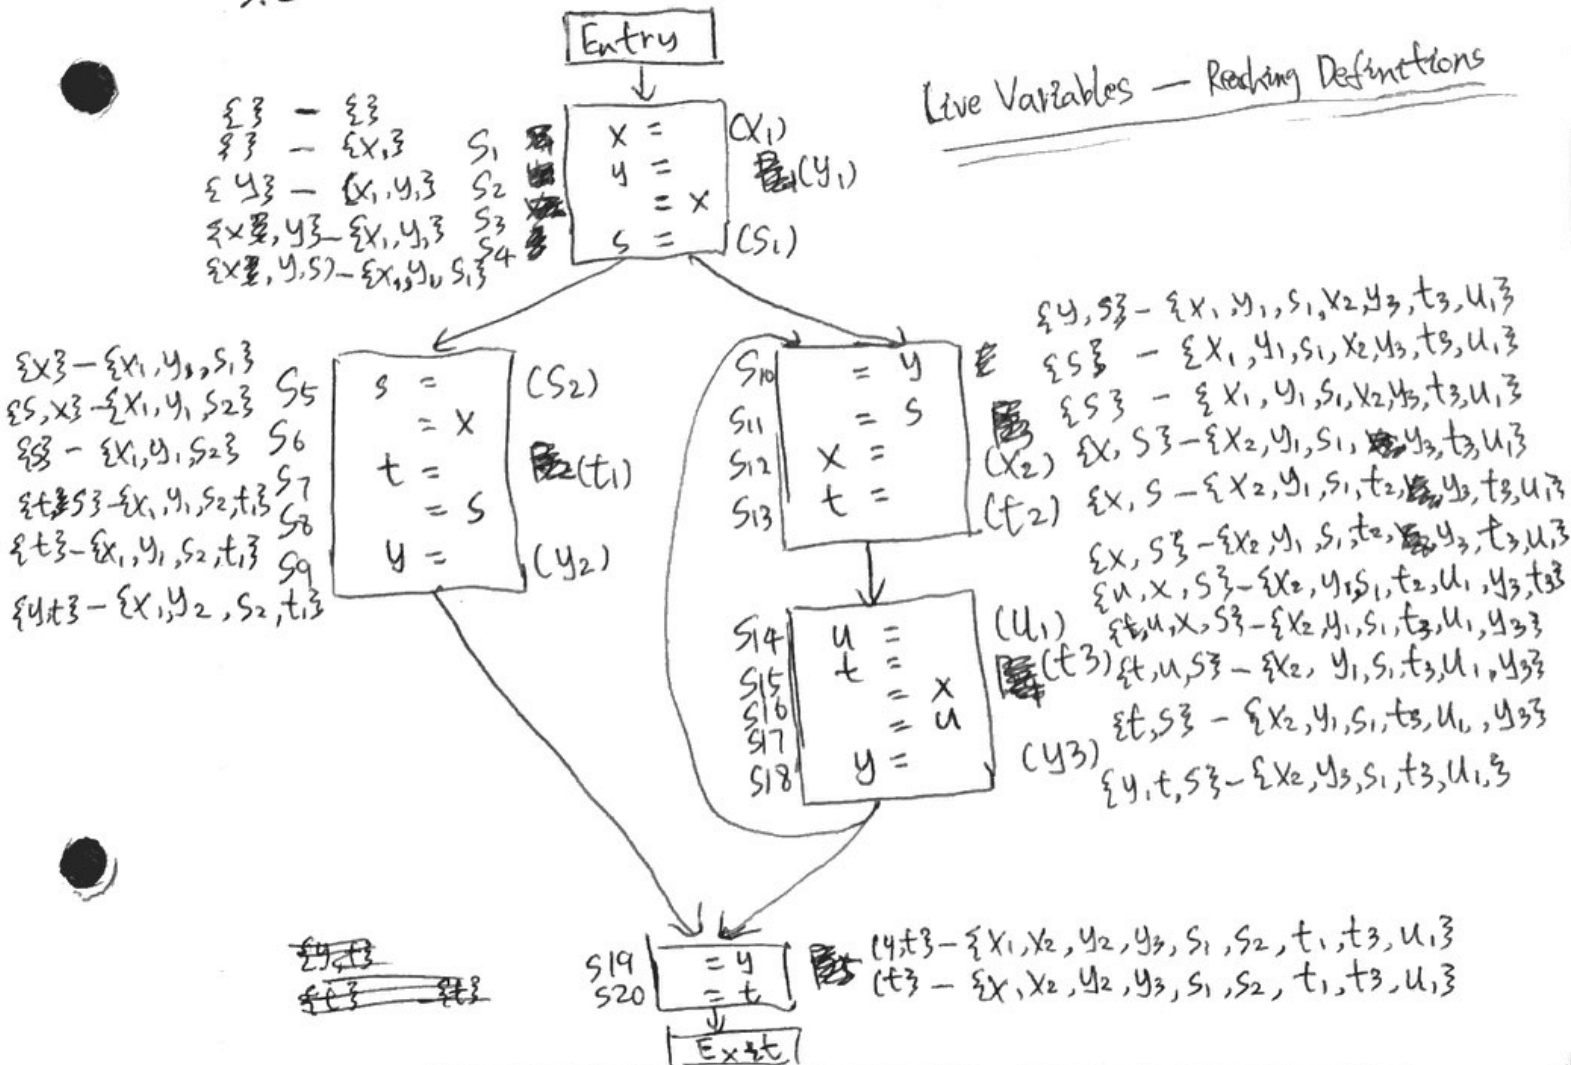 Entry
Live Variables — Reaching Definitions
{} - {}
{} - {x1}
{y} - {x1, y1}
{x, y} - {x1, y1}
{x, y, s} - {x1, y1, s1}
S1 x = (x1)
S2 y = (y1)
S3 = x
S4 s = (s1)
{x} - {x1, y1, s1}
{s, x} - {x1, y1, s2}
{s} - {x1, y1, s2}
{t, s} - {x1, y1, s2, t1}
{t} - {x1, y1, s2, t1}
{y,t} - {x1, y2, s2, t1}
S5 s = (s2)
S6 = x
S7 t = (t1)
S8 = s
S9 y = (y2)
S10 = y
S11 = s
S12 x = (x2)
S13 t = (t2)
{y, s} - {x1, y1, s1, x2, y3, t3, u1}
{s} - {x1, y1, s1, x2, y3, t3, u1}
{s} - {x1, y1, s1, x2, y3, t3, u1}
{x, s} - {x2, y1, s1, y3, t3, u1}
{x, s - {x2, y1, s1, t2, y3, t3, u1}
{x, s} - {x2, y1, s1, t2, y3, t3, u1}
{u, x, s} - {x2, y1, s1, t2, u1, y3, t3}
{t, u, x, s} - {x2, y1, s1, t3, u1, y3}
{t, u, s} - {x2, y1, s1, t3, u1, y3}
{t, s} - {x2, y1, s1, t3, u1, y3}
{y, t, s} - {x2, y3, s1, t3, u1,}
S14 u = (u1)
S15 t = (t3)
S16 = x
S17 = u
S18 y = (y3)
{y,t}
{t} - {t}
S19 = y
S20 = t
{y,t} - {x1, x2, y2, y3, s1, s2, t1, t3, u1}
{t} - {x, x2, y2, y3, s1, s2, t1, t3, u1}
Exit